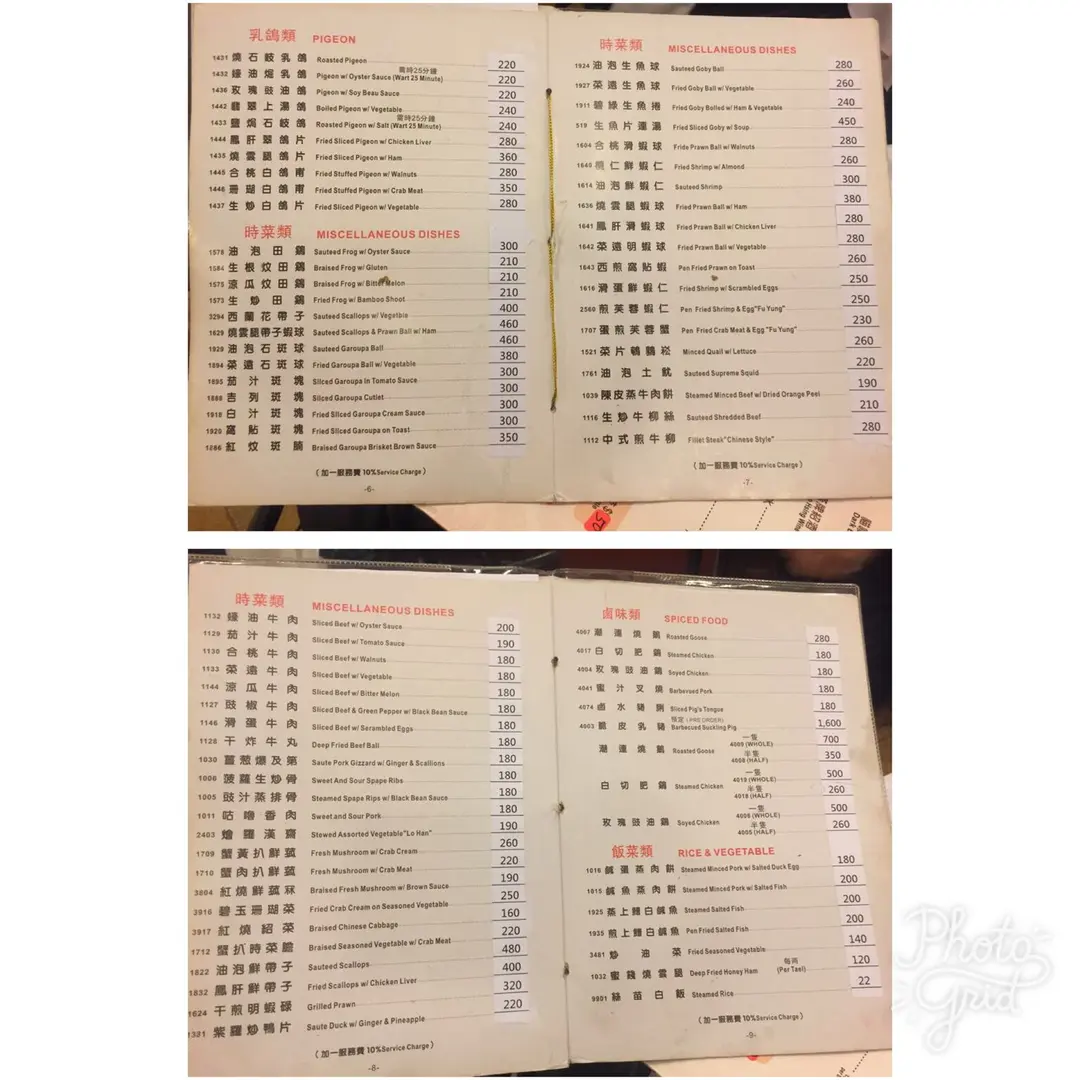 乳鴿類 PIGEON
1431 燒石岐乳鴿 Roasted Pigeon 220
需時25分鐘
1432 蠔油焗乳鴿 Pigeon w/ Oyster Sauce (Wart 25 Minute) 220
1436 玫瑰豉油鴿 Pigeon w/ Soy Beau Sauce 220
1442 翡翠上湯鴿 Boiled Pigeon w/ Vegetable 240
需時25分鐘
1433 鹽焗石岐鴿 Roasted Pigeon w/ Salt (Wart 25 Minute) 240
1444 鳳肝翠鴿片 Fried Sliced Pigeon w/ Chicken Liver 280
1435 燒雲腿鴿片 Fried Sliced Pigeon w/ Ham 360
1445 合桃白鴿甫 Fried Stuffed Pigeon w/ Walnuts 280
1446 珊瑚白鴿甫 Fried Stuffed Pigeon w/ Crab Meat 350
1437 生炒白鴿片 Fried Sliced Pigeon w/ Vegetable 280
時菜類 MISCELLANEOUS DISHES
1578 油泡田鷄 Sauteed Frog w/ Oyster Sauce 300
1584 生根炆田鷄 Braised Frog w/ Gluten 210
1575 涼瓜炆田鷄 Braised Frog w/ Bitter Melon 210
1573 生炒田鷄 Fried Frog w/ Bamboo Shoot 210
3294 西蘭花帶子 Sauteed Scallops w/ Vegetble 400
1629 燒雲腿帶子蝦球 Sauteed Scallops & Prawn Ball w/ Ham 460
1929 油泡石斑球 Sauteed Garoupa Ball 460
1894 菜遠石斑球 Fried Garoupa Ball w/ Vegetable 380
1895 茄汁斑塊 Sliced Garoupa In Tomato Sauce 300
1888 吉列斑塊 Sliced Garoupa Cutlet 300
1918 白汁斑塊 Fried Sliced Garoupa Cream Sauce 300
1920 窩貼斑塊 Fried Sliced Garoupa on Toast 300
1886 紅炆斑腩 Braised Garoupa Brisket Brown Sauce 350
(加一服務費 10%Service Charge)
-6-
時菜類 MISCELLANEOUS DISHES
1924 油泡生魚球 Sauteed Goby Ball 280
1927 菜遠生魚球 Fried Goby Ball w/ Vegetable 260
1911 碧綠生魚捲 Fried Goby Bolled w/ Ham & Vegetable 240
519 生魚片連湯 Fried Sliced Goby w/ Soup 450
1604 合桃滑蝦球 Fride Prawn Ball w/ Walnuts 280
1640 欖仁鮮蝦仁 Fried Shrimp w/ Almond 260
1614 油泡鮮蝦仁 Sauteed Shrimp 300
1636 燒雲腿蝦球 Fried Prawn Ball w/ Ham 380
1641 鳳肝滑蝦球 Fried Prawn Ball w/ Chicken Liver 280
1642 菜遠明蝦球 Fried Prawn Ball w/ Vegetable 280
1643 西煎窩貼蝦 Pen Fried Prawn on Toast 260
1616 滑蛋鮮蝦仁 Fried Shrimp w/ Scrambled Eggs 250
2560 煎芙蓉蝦仁 Pen Fried Shrimp & Egg"Fu Yung" 250
1707 蛋煎芙蓉蟹 Pen Fried Crab Meat & Egg "Fu Yung" 230
1521 菜片鵪鶉崧 Minced Quail w/ Lettuce 260
1761 油泡土魷 Sauteed Supreme Squid 220
1039 陳皮蒸牛肉餅 Steamed Minced Beef w/ Dried Orange Peel 190
1116 生炒牛柳絲 Sauteed Shredded Beef 210
1112 中式煎牛柳 Fillet Steak"Chinese Style" 280
(加一服務費 10%Service Charge)
-7-
50
時菜類 MISCELLANEOUS DISHES
1132 蠔油牛肉 Sliced Beef w/ Oyster Sauce 200
1129 茄汁牛肉 Sliced Beef w/ Tomato Sauce 190
1130 合桃牛肉 Sliced Beef w/ Walnuts 180
1133 菜遠牛肉 Sliced Beef w/ Vegetable 180
1144 涼瓜牛肉 Sliced Beef w/ Bitter Melon 180
1127 豉椒牛肉 Sliced Beef & Green Pepper w/ Black Bean Sauce 180
1146 滑蛋牛肉 Sliced Beef w/ Serambled Eggs 180
1128 干炸牛丸 Deep Fried Beef Ball 180
1030 薑葱爆及第 Saute Pork Gizzard w/ Ginger & Scallions 180
1006 菠蘿生炒骨 Sweet And Sour Spape Ribs 180
1005 豉汁蒸排骨 Steamed Spape Rips w/ Black Bean Sauce 180
1011 咕嚕香肉 Sweet and Sour Pork 180
2403 燴羅漢齋 Stewed Assorted Vegetable"Lo Han" 190
1709 蟹黃扒鮮菰 Fresh Mushroom w/ Crab Cream 260
1710 蟹肉扒鮮菰 Fresh Mushroom w/ Crab Meat 220
3804 紅燒鮮菰冧 Braised Fresh Mushroom w/ Brown Sauce 190
3916 碧玉珊瑚菜 Fried Crab Cream on Seasoned Vegetable 250
3917 紅燒紹菜 Braised Chinese Cabbage 160
1712 蟹扒時菜膽 Braised Seasoned Vegetable w/ Crab Meat 220
1822 油泡鮮帶子 Sauteed Scallops 480
1832 鳳肝鮮帶子 Fried Scallops w/ Chicken Liver 400
1624 干煎明蝦碌 Grilled Prawn 320
1381 紫羅炒鴨片 Saute Duck w/ Ginger & Pineapple 220
(加一服務費 10%Service Charge)
-8-
鹵味類 SPICED FOOD
4007 潮連燒鵝 Roasted Goose 280
4017 白切肥鷄 Steamed Chicken 180
4004 玫瑰豉油鷄 Soyed Chicken 180
4041 蜜汁叉燒 Barbevued Pork 180
4074 鹵水豬脷 Sliced Pig's Tongue 180
預定(PRE ORDER)
4003 脆皮乳豬 Barbecued Suckling Pig 1,600
一隻
4009 (WHOLE) 700
潮連燒鵝 Roasted Goose
半隻
4008 (HALF) 350
一隻
4019 (WHOLE) 500
白切肥鷄 Steamed Chicken
半隻
4018 (HALF) 260
一隻
4006 (WHOLE) 500
玫瑰豉油鷄 Soyed Chicken
半隻
4005 (HALF) 260
飯菜類 RICE & VEGETABLE
1016 鹹蛋蒸肉餅 Steamed Minced Pork w/ Salted Duck Egg 180
1015 鹹魚蒸肉餅 Steamed Minced Pork w/ Salted Fish 200
1925 蒸上膶白鹹魚 Steamed Salted Fish 200
1935 煎上膶白鹹魚 Pen Fried Salted Fish 200
3461 炒油菜 Fried Seasoned Vegetable 140
每両
1032 蜜餞燒雲腿 Deep Fried Honey Ham (Per Tael) 120
9901 絲苗白飯 Steamed Rice 22
(加一服務費 10%Service Charge)
-9-
Photo
Grid